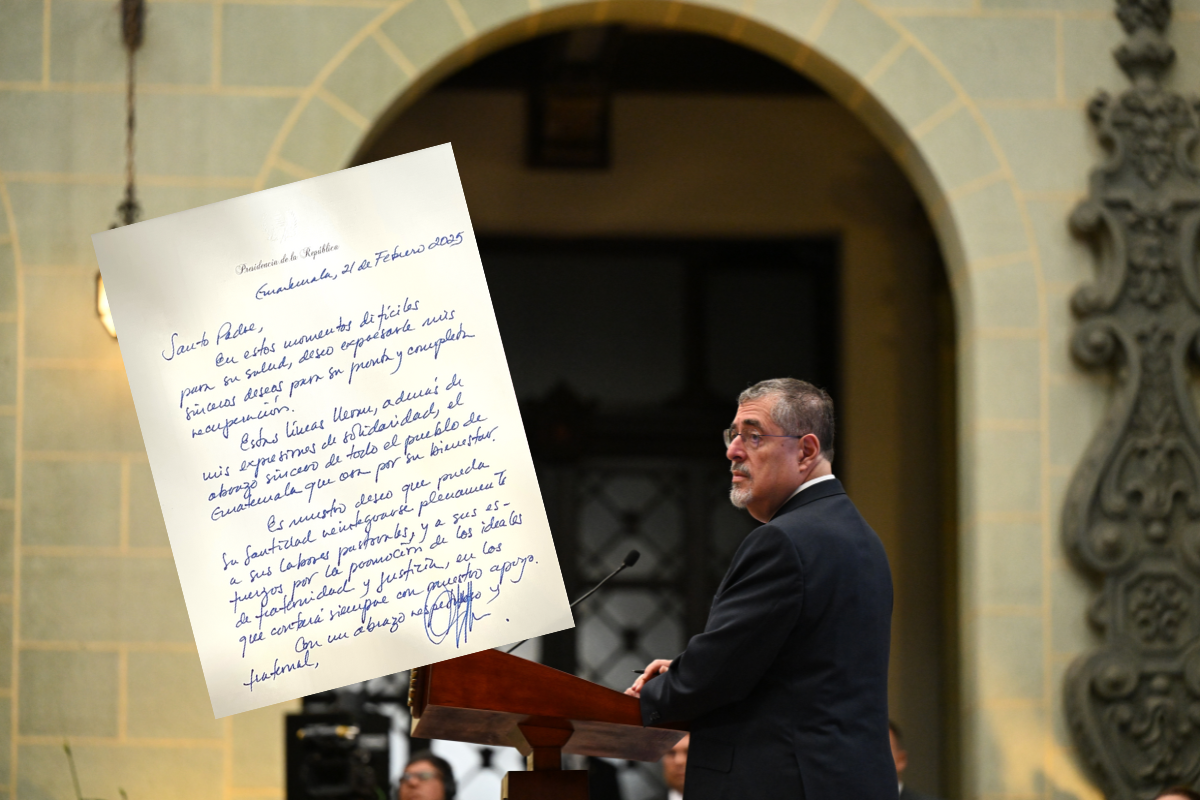 Presidencia de la República
Guatemala, 21 de Febrero 2025
Santo Padre,
En estos momentos difíciles
para su salud, deseo expresarle mis
sinceros deseos para su pronta y completa
recuperación.
Estas líneas llevan, además de
mis expresiones de solidaridad, el
abrazo sincero de todo el pueblo de
Guatemala que ora por su bienestar.
Es nuestro deseo que pueda
Su Santidad reintegrarse plenamente
a sus labores pastorales, y a sus es-
fuerzos por la promoción de los ideales
de fraternidad y justicia, en los
que contará siempre con nuestro apoyo.
Con un abrazo respetuoso y
fraternal,